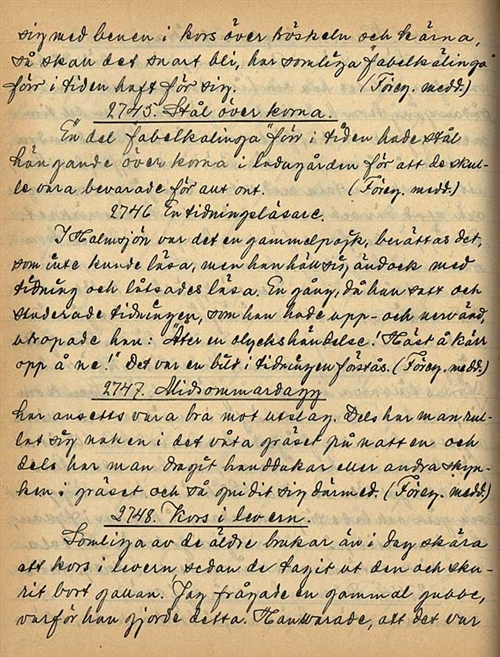 sig med benen i kors över tröskeln och kärna,
så skall det snart bli, har somliga "fabelkälinga"
förr i tiden haft för sig. (Föreg. medd.)
2745. Stål över korna.
En del "fabelkalinga" förr i tiden hade stål
hängande över korna i ladugården för att de skul-
le vara bevarade för allt ont. (Föreg. medd.)
2746 En tidningsläsare.
I Halmsjön var det en gammelpojk, berättas det,
som inte kunde läsa, men han höll sig ändock med
tidning och låtsades läsa. En gång, då han satt och
studerade tidningen, som han hade upp- och nervänd,
utropade han: "Åter en olyckshändelse! Häst å kärr
opp å ne!" Det var en bild i tidningen förstås. (Föreg. medd.)
2747. Midsommardagg
har ansetts vara bra mot utslag. Dels har man rul-
lat sig naken i det våta gräset på natten och
dels har man dragit handdukar eller andra skyn-
ken i gräset och så gnidit sig därmed. (Föreg. medd.)
2748. Kors i levern.
Somliga av de äldre brukar än i dag skära
ett kors i levern sedan de tagit ut den och sku-
rit bort gallan. Jag frågade en gammal gubbe,
varför han gjorde detta. Han svarade, att det var